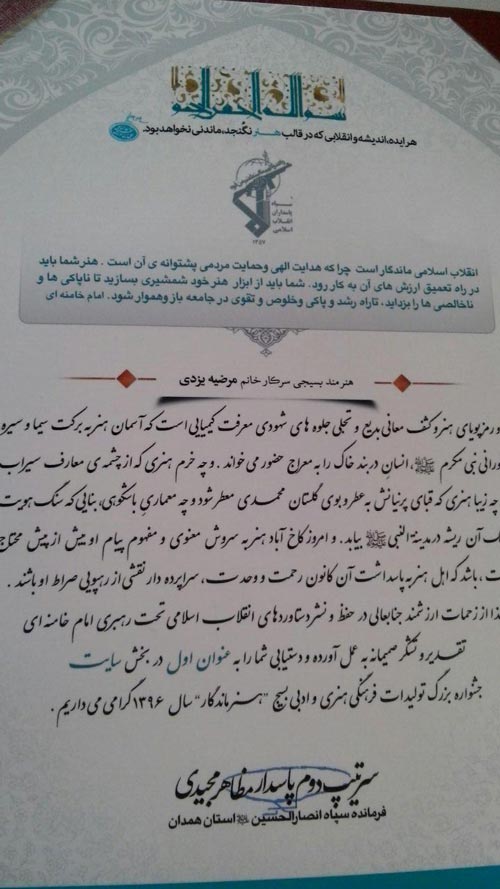 هر ایده، اندیشه و انقلابی که در قالب هنر نگنجد، ماندنی نخواهد بود.
سپاه
پاسداران
انقلاب
اسلامی
۱۳۵۷
انقلاب اسلامی ماندگار است چرا که هدایت الهی وحمایت مردمی پشتوانه ی آن است . هنر شما باید
در راه تعمیق ارزش های آن به کار رود. شما باید از ابزار هنر خود شمشیری بسازید تا ناپاکی ها و
ناخالصی ها را بزداید، تاراه رشد و پاکی وخلوص و تقوی در جامعه باز وهموار شود. امام خامنه ای
هنرمند بسیجی سرکار خانم مرضیه یزدی
و رمز پویای هنر و کشف معانی بدیع و تجلی جلوه های شهودی معرفت کیمیایی است که آسمان هنر به برکت سیما و سیره
نبی مکرم ﷺ، انسان دربند خاک را به معراج حضور می خواند . و چه خرم هنری که از چشمه ی معارف سیراب
چه زیبا هنری که قبای پرنیانش به عطر و بوی گلستان محمدی معطر شود و چه معماری باشکوهی، بنایی که سنگ هویت
آن ریشه در مدینة النبی ﷺ بیابد. و امروز کاخ آباد هنر به سروش معنوی و مفهوم پیام او بیش از پیش محتاج
باشد که اهل هنر به پاسداشت آن کانون رحمت و وحدت، سراپرده دار نقشی از رهپویی صراط او باشند .
از زحمات ارزشمند جنابعالی در حفظ و نشر دستاوردهای انقلاب اسلامی تحت رهبری امام خامنه ای
تقدیر و تشکر صمیمانه به عمل آورده و دستیابی شما را به عنوان اول در بخش سایت
جشنواره بزرگ تولیدات فرهنگی هنری و ادبی بسیج "هنر ماندگار" سال ۱۳۹۶ گرامی می داریم .
سرتیپ دوم پاسدار مظاهر مجیدی
فرمانده سپاه انصارالحسین استان همدان